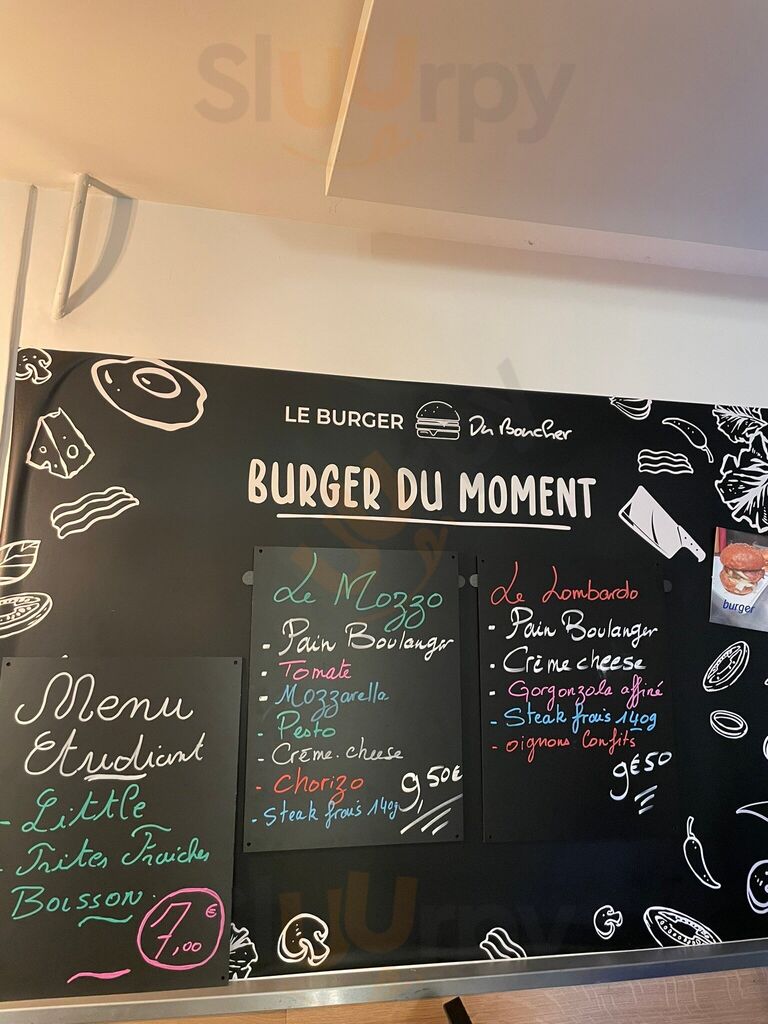 Sluurpy
LE BURGER Du Boucher
BURGER DU MOMENT
Le Mozzo
- Pain Boulanger
- Tomate
- Mozzarella
- Pesto
- Crème cheese
- Chorizo
- Steak frais 140g
9,50€
Le Lombardo
- Pain Boulanger
- Crème cheese
- Gorgonzola affiné
- Steak frais 140g
- oignons Confits
9€50
burger
Menu
Etudiant
- Little
- Frites Fraiches
Boisson
7,00€
Sluurpy